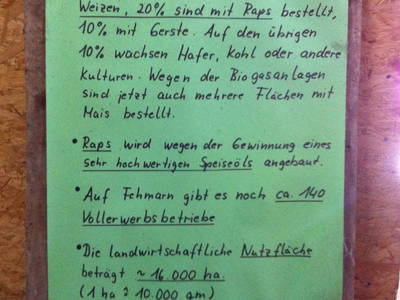 Weizen, 20% sind mit Raps bestellt,
10% mit Gerste. Auf den übrigen
10% wachsen Hafer, Kohl oder andere
Kulturen. Wegen der Biogasanlagen
sind jetzt auch mehrere Flächen mit
Mais bestellt.
• Raps wird wegen der Gewinnung eines
sehr hochwertigen Speiseöls angebaut.
• Auf Fehmarn gibt es noch ca. 140
Vollerwerbsbetriebe
• Die landwirtschaftliche Nutzfläche
beträgt ~ 16.000 ha.
(1 ha ≙ 10.000 qm)